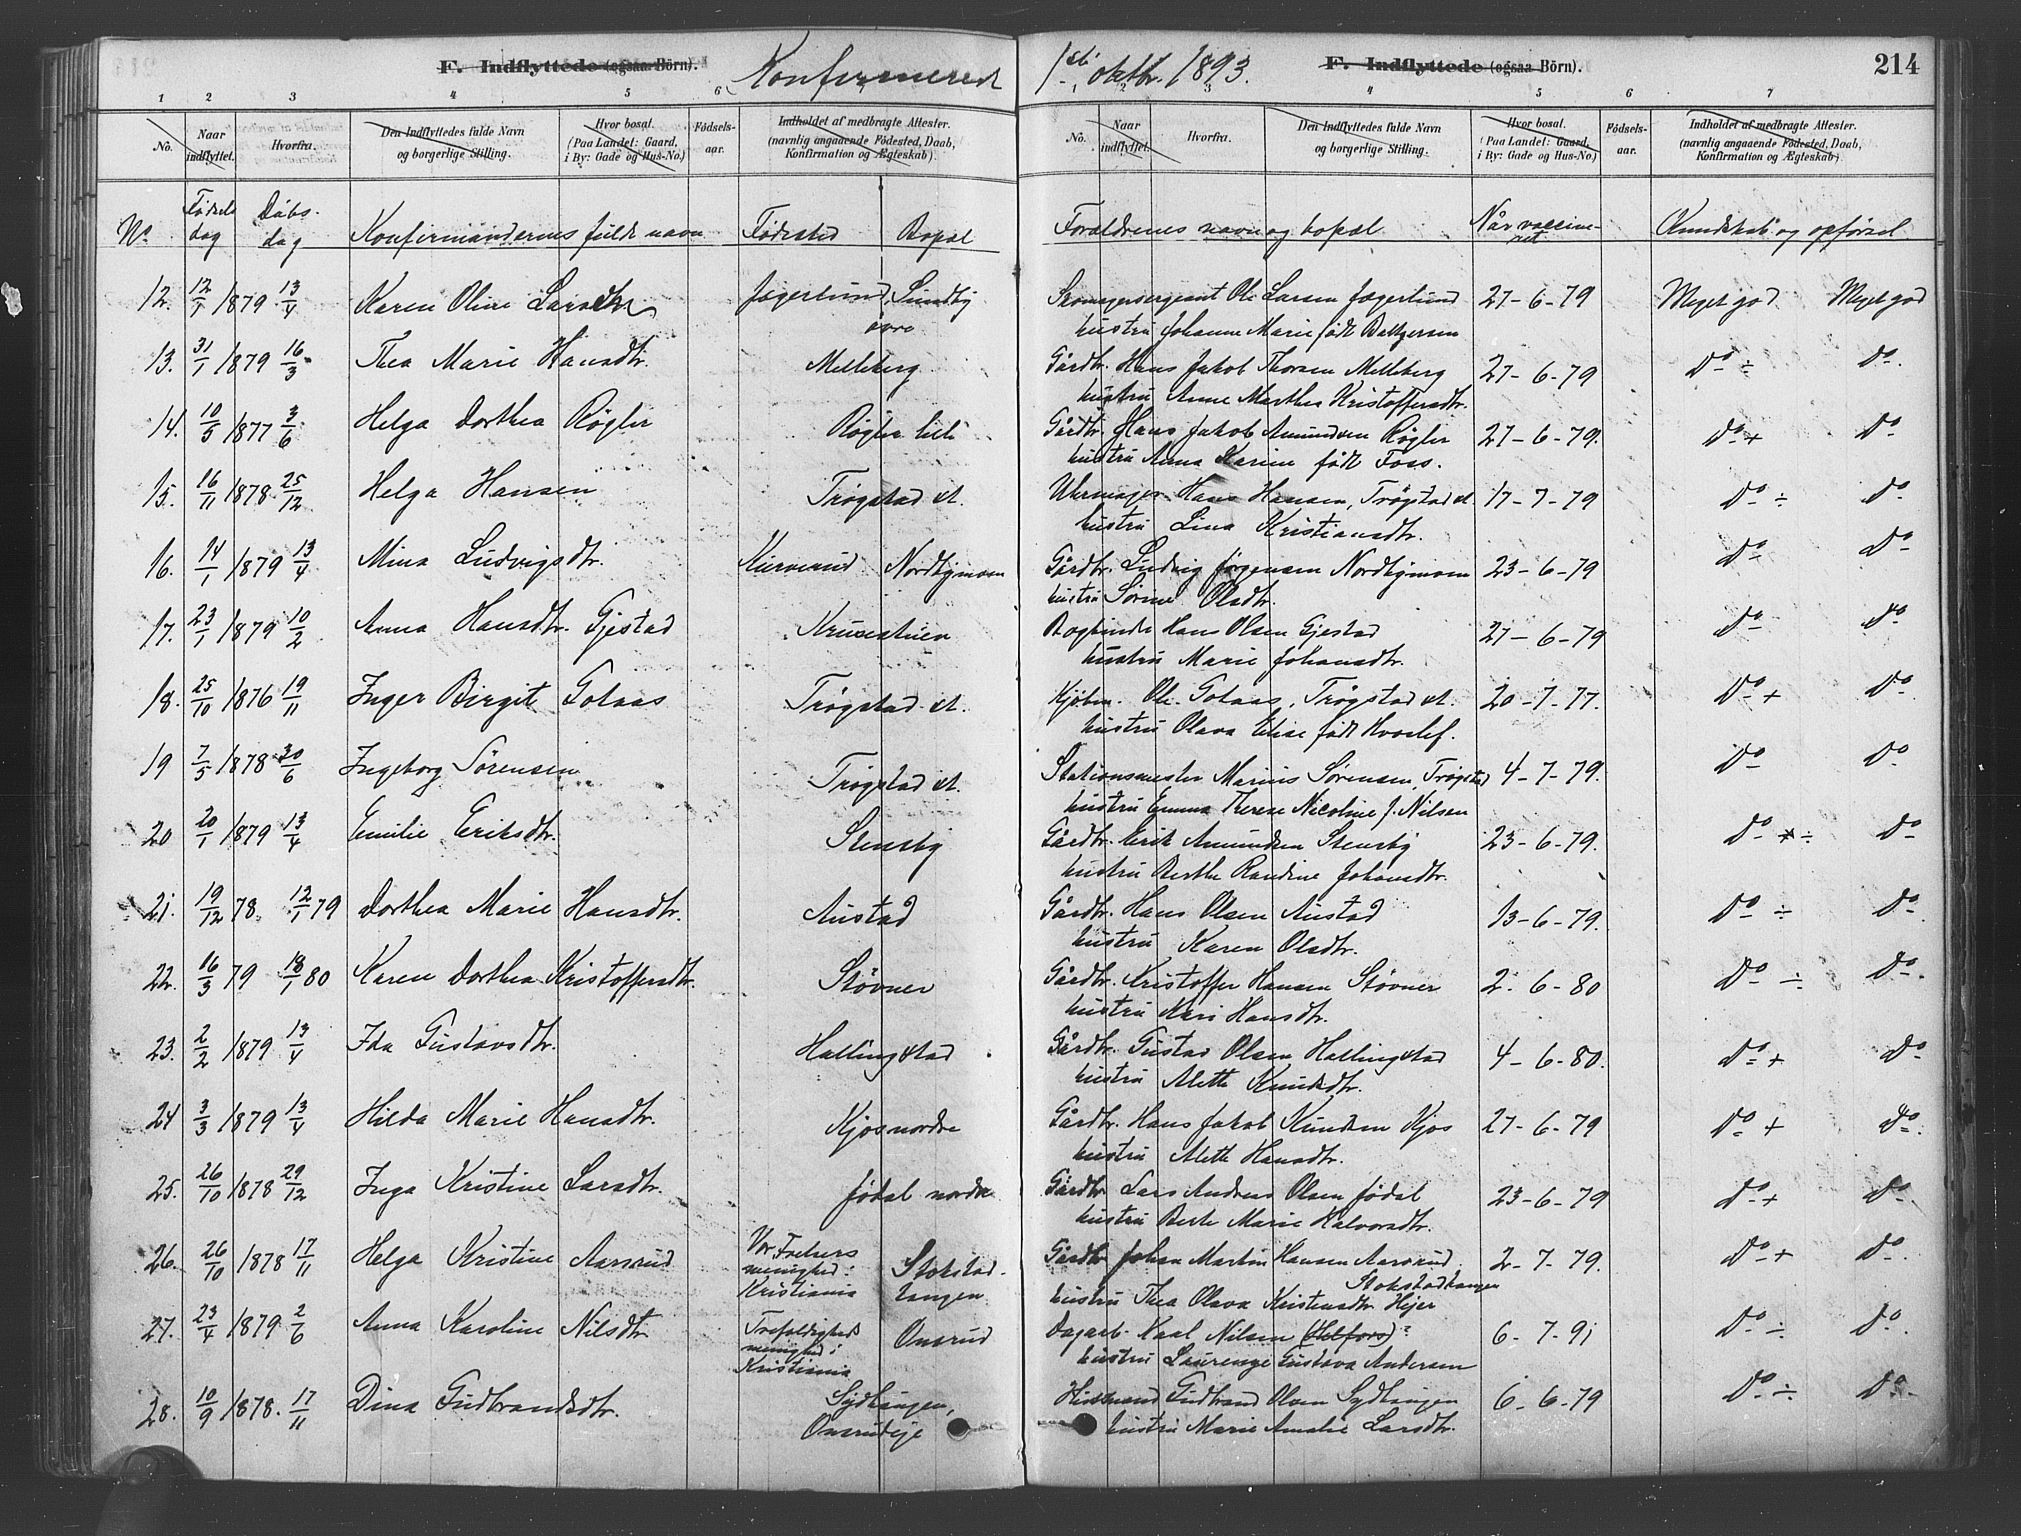 F. Indflyttede (ogsaa Börn).
Konfirmerede
1ste oktbr. 1893.
F. Indflyttede (ogsaa Börn).
214
1 2 3 4 5 6
1 2 3 4 5 6 7
No. Naar indflyttet. Hvorfra. Den Indflyttedes fulde Navn og borgerlige Stilling. Hvor bosat. (Paa Landet: Gaard, i By: Gade og Hus-No.) Födsels-aar. Indholdet af medbragte Attester. (navnlig angaaende Födested, Daab, Konfirmation og Ægteskab).
No. Naar indflyttet. Hvorfra. Den Indflyttedes fulde Navn og borgerlige Stilling. Hvor bosat. (Paa Landet: Gaard, i By: Gade og Hus-No.) Födsels-aar. Indholdet af medbragte Attester. (navnlig angaaende Födested, Daab, Konfirmation og Ægteskab).
No. Fødselsdag Dåbsdag Konfirmandernes fulde navn Fødested Bopæl Forældrenes navn og bopæl Når vaccineret Kundskab og opførsel
12. 12/1 1879 13/4 Karen Oline Larsdtr Jægerlund Sundby øvre Ole Larsen Jægerlund 27-6-79 Meget god Meget god
hustru Johanne Marie født
13. 31/1 1879 16/3 Thea Marie Hansdtr. Melleberg Gårdbr. Hans Jakob Thorsen Melleberg 27-6-79 Do ÷ Do
hustru Anne Marthea Kristoffersdtr.
14. 10/5 1877 3/6 Helga Dorthea Røgler Røgler Gårdbr. Hans Jakob Amundsen Røgler 27-6-79. Do + Do
hustru Anna Karine født Foss.
15. 16/11 1878 25/12 Helga Hansen Trøgstad st. Uhrmager Hans Hansen, Trøgstad st. 17-7-79 Do ÷ Do
hustru Lina Kristiansdtr.
16. 14/1 1879 13/4 Mina Ludvigsdtr. Kurverud Nordbymoen Gårdbr. Ludvig Jørgensen Nordbymoen 23-6-79 Do Do
hustru Sørine Olsdtr.
17. 23/1 1879 10/2 Anna Hansdtr. Gjestad Krusestuen Bogbinder Hans Olsen Gjestad 27-6-79 Do Do
hustru Marie Johansdtr.
18. 25/10 1876 19/11 Inger Birgit Gotaas Trøgstad st. Kjøbm. Ole Gotaas, Trøgstad st. 20-7-77. Do + Do
hustru Olava Elise født Hvoslef.
19 7/5 1878 30/6 Ingeborg Sørensen Trøgstad st. Stationsmester Marius Sørensen, Trøgstad 4-7-79. Do Do
hustru Emma Therese Nicoline f. Nilsen
20 20/1 1879 13/4 Emilie Eriksdtr. Stensby Gårdbr. Erik Amundsen Stensby 23-6-79. Do ÷ Do
hustru Berthe Randine Johansdtr.
21. 19/12 78 12/1 79 Dorthea Marie Hansdtr. Austad Gårdbr. Hans Olsen Austad 13-6-79. Do ÷ Do
hustru Karen Olsdtr.
22. 16/3 79 18/1 80 Karen Dorthea Kristoffersdtr. Støvner Gårdbr. Kristoffer Hansen Støvner 2-6-80 Do ÷ Do
hustru Kari Hansdtr.
23. 2/2 1879 13/4 Ida Gustavsdtr. Hallingstad Gårdbr. Gustav Olsen Hallingstad 4-6-80. Do + Do
hustru Alette Knudsdtr.
24 3/3 1879 13/4 Hilda Marie Hansdtr. Kjos nordre Gårdbr. Hans Jakob Knudsen Kjos 27-6-79 Do + Do.
hustru Alette Hansdtr.
25. 26/10 1878 29/12 Inga Kristine Larsdtr. Jødal nordre Gårdbr. Lars Andreas Olsen Jødal 23-6-79 Do + Do
hustru Berte Marie Halvorsdtr.
26. 26/10 1878 17/11 Helga Kristine Aarsrud Vor Frelsers menighed i Kristiania Stokstadtangen Gårdbr. Johan Martin Hansen Aarsrud Stokstadtangen 2-7-79. Do + Do
hustru Thea Olava Kristensdtr. Hejer
27. 23/4 1879 2/6 Anna Karoline Nilsdtr. Trefoldigheds menighed i Kristiania Onsrud Dagarb. Karl Nilsen 6-7-91 Do ÷ Do
hustru Laurense Gustava Andersen
28. 10/9 1878. 17/11 Dina Gudbrandsdtr. Sydtangen, Onsrudeje Husmand Gudbrand Olsen Sydtangen 6-6-79 Do ÷ Do.
hustru Marie Amalie Larsdtr.